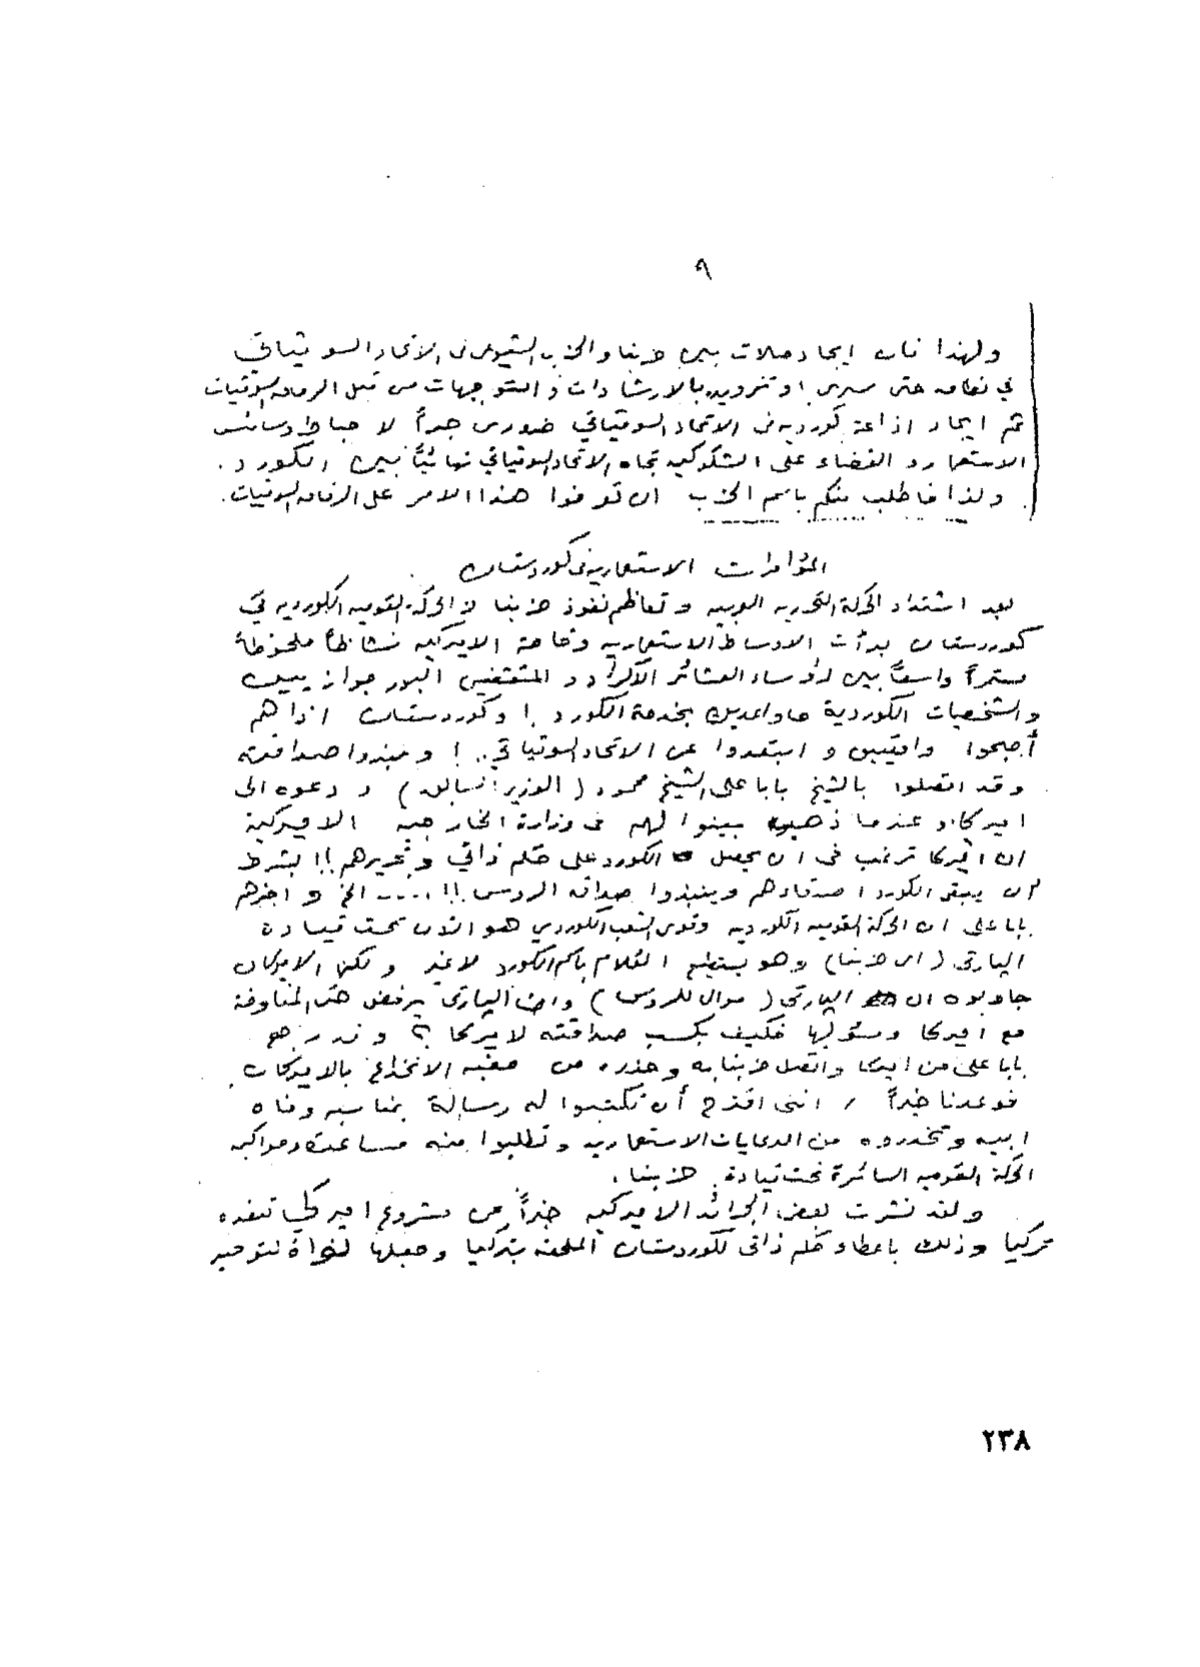 ٩
ولهذا فان ايجاد صلات بين حزبنا والحزب الشيوعي في الاتحاد السوفيتي
في نطاقه حتى سري او تزويده بالارشادات و التوجيهات من قبل الرفاق السوفيات
ثم ايجاد اذاعة كوردية في الاتحاد السوفياتي ضروري جداً لاحباط دسائس
الاستعمار و القضاء على الشكوك تجاه الاتحاد السوفياتي نهائياً بين الكورد .
ولذا فاطلب منكم باسم الحزب ان تعرضوا هذا الامر على الرفاق السوفيات .
المؤامرات الاستعمارية في كوردستان
بعد اشتداد الحركة التحررية العربية و تعاظم نفوذ حزبنا و الحركة القومية الكوردية في
كوردستان بدأت الاوساط الاستعمارية وخاصة الاميركية نشاطاً ملحوظاً
مستمراً واسعاً بين رؤساء العشائر الاكراد و المثقفين البورجوازيين
والشخصيات الكوردية واعدين بخدمة الكورد ! و كوردستان اذا هم
أصبحوا واقعيين و ابتعدوا عن الاتحاد السوفياتي .. ! و نبذوا صداقته
وقد اتصلوا بالشيخ بابا علي الشيخ محمود ( الوزير السابق ) و دعوه الى
اميركا و عندما ذهب بينوا لهم في وزارة الخارجية الاميركية
ان اميركا ترغب في ان يحصل الكورد على حكم ذاتي و تحريرهم !! بشرط
ان يبقى الكورد اصدقاءهم وينبذوا صداقة الروس !! .... الخ و اخبرهم
بابا علي ان الحركة القومية الكوردية وقوى الشعب الكوردي هو الآن تحت قيادة
البارتي ( اي حزبنا ) وهو يستطيع الكلام باسم الكورد لا غير و لكن الاميركان
جاوبوه ان البارتي ( موال للروس ) وان البارتي يرفض حتى المفاوضة
مع اميركا ومسئوليها فكيف بكسب صداقته لاميركا ؟ و قد رجع
بابا علي من اميركا واتصل حزبنا به وحذره من مغبة الانخداع بالاميركان
فوعدنا خيراً , انني اقترح أن تكتبوا له رسالة بمناسبة وفاة
ابيه وتحذروه من الدعايات الاستعمارية و تطلبوا منه مساعدة ومواكبة
الحركة القومية السائرة تحت قيادة حزبنا .
ولقد نشرت بعض الجرائد الاميركية خبراً عن مشروع اميركي تنفذه
تركيا وذلك باعطاء حكم ذاتي لكوردستان الملحقة بتركيا وجعلها نواة لتوحيد
٢٣٨